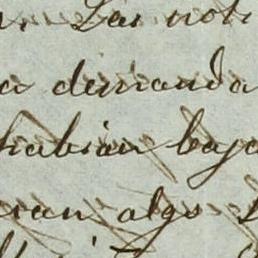 Las noti
a demanda
habian baja
ran algo